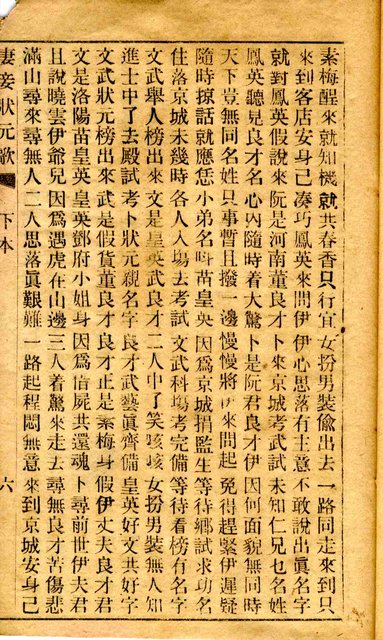 素梅醒來就知機 就共春香只行宜 女扮男裝偸出去 一路同走來到只
來到客店安身己 湊巧鳳英來問伊 伊心思落有主意 不敢說出眞名字
就對鳳英假說來 阮是河南董良才 卜來京城考武試 未知仁兄乜名姓
鳳英聽見良才名 心內隨時着大驚 卜是阮君良才伊 因何面貌無同時
天下豈無同名姓 只事暫且撥一邊 慢慢將伊來問起 免得趕緊伊遲疑
隨時掠話就應恁 小弟名叫苗皇英 因爲京城捐監生 等待鄉試求功名
住落京城未幾時 各人入場去考試 文武科塲考完備 等待看榜有名字
文武舉人榜出來 文是皇英武良才 二人中了笑咳咳 女扮男裝無人知
進士中了去殿試 考卜狀元親名字 良才武藝眞齊備 皇英好文共好字
文武狀元榜出來 武是假貨董良才 良才正是素梅身 伊夫丈夫良才君
文是洛陽苗皇英 皇英鄧府小姐身 因爲借屍共還魂 卜尋前世伊夫君
且說曉雲伊爺兒 因爲遇虎在山邊 三人着驚來走去 尋無良才苦傷悲
滿山尋來尋無人 二人思落眞艱難 一路起程悶無意 來到京城安身己
妻妾狀元歌 下本 六